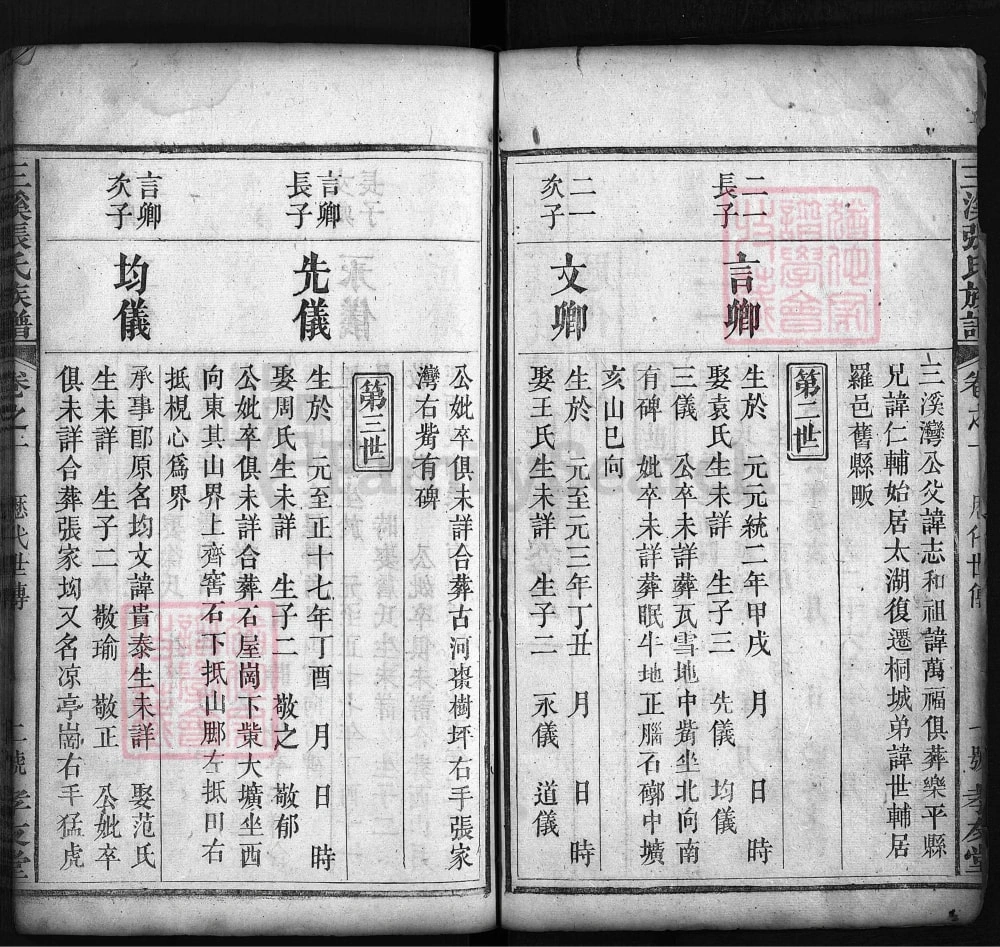 三溪張氏族譜 卷之一 歷代世傳 一號 孝友堂
三溪灣公父諱志和祖諱萬福俱葬樂平縣
兄諱仁輔始居太湖復遷桐城弟諱世輔居
羅邑舊縣畈
第二世
二一
長子
言卿
生於 元元統二年甲戌 月 日 時
娶袁氏生未詳 生子三 先儀 均儀
三儀 公卒未詳葬瓦雪地中嘴坐北向南
有碑 妣卒未詳葬眠牛地正腦石槨中壙
二一
次子
文卿
生於 元至元三年丁丑 月 日 時
娶王氏生未詳 生子二 永儀 道儀
公妣卒俱未詳合葬古河棗樹坪右手張家
灣右嘴有碑
亥山巳向
第三世
言卿
長子
先儀
生於 元至正十七年丁酉 月 日 時
娶周氏生未詳 生子二 敬之 敬郁
公妣卒俱未詳合葬石屋崗下塋大壙坐西
向東其山界上齊窖石下抵山脚左抵田右
抵梘心為界
言卿
次子
均儀
承事郎原名均文諱貴泰生未詳 娶范氏
生未詳 生子二 敬瑜 敬正 公妣卒
俱未詳合葬張家坳又名凉亭崗右手猛虎
三溪張氏族譜 卷之一 歷代世傳 二號 孝友堂